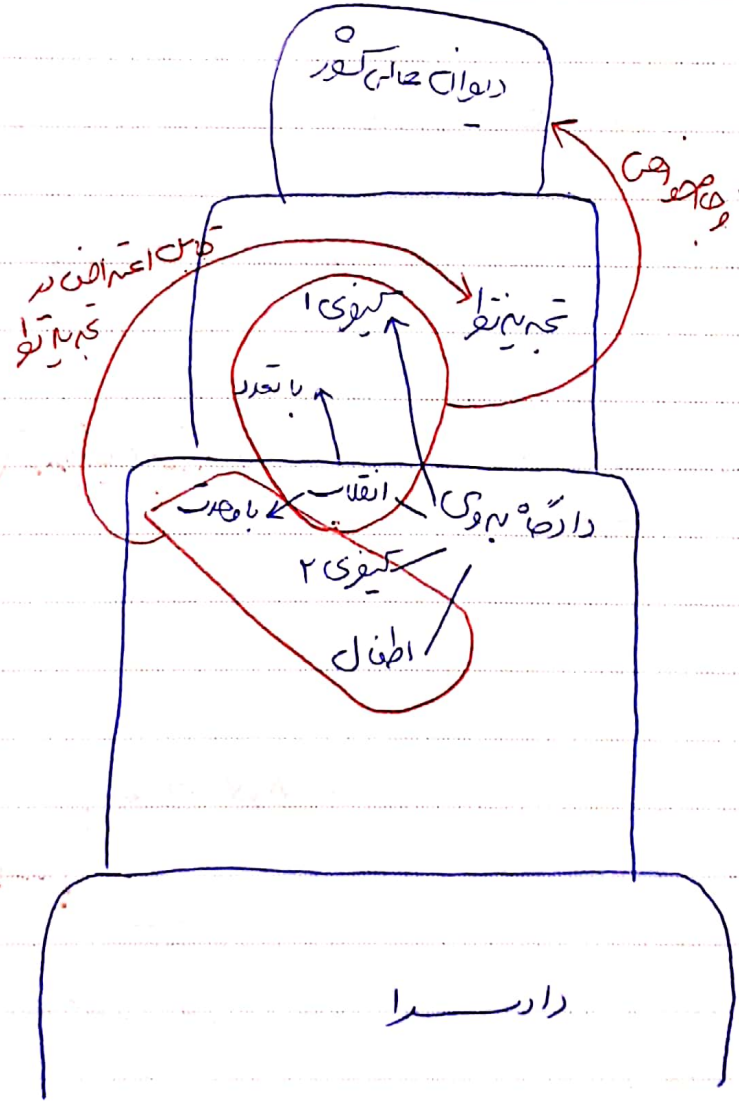 دیوان عالی کشور
فرجام خواهی
قابل اعتراض در
تجدیدنظر
کیفری ۱
تجدیدنظر
با تعدد
دادگاه بدوی
انقلاب
با وحدت
کیفری ۲
اطفال
دادسرا